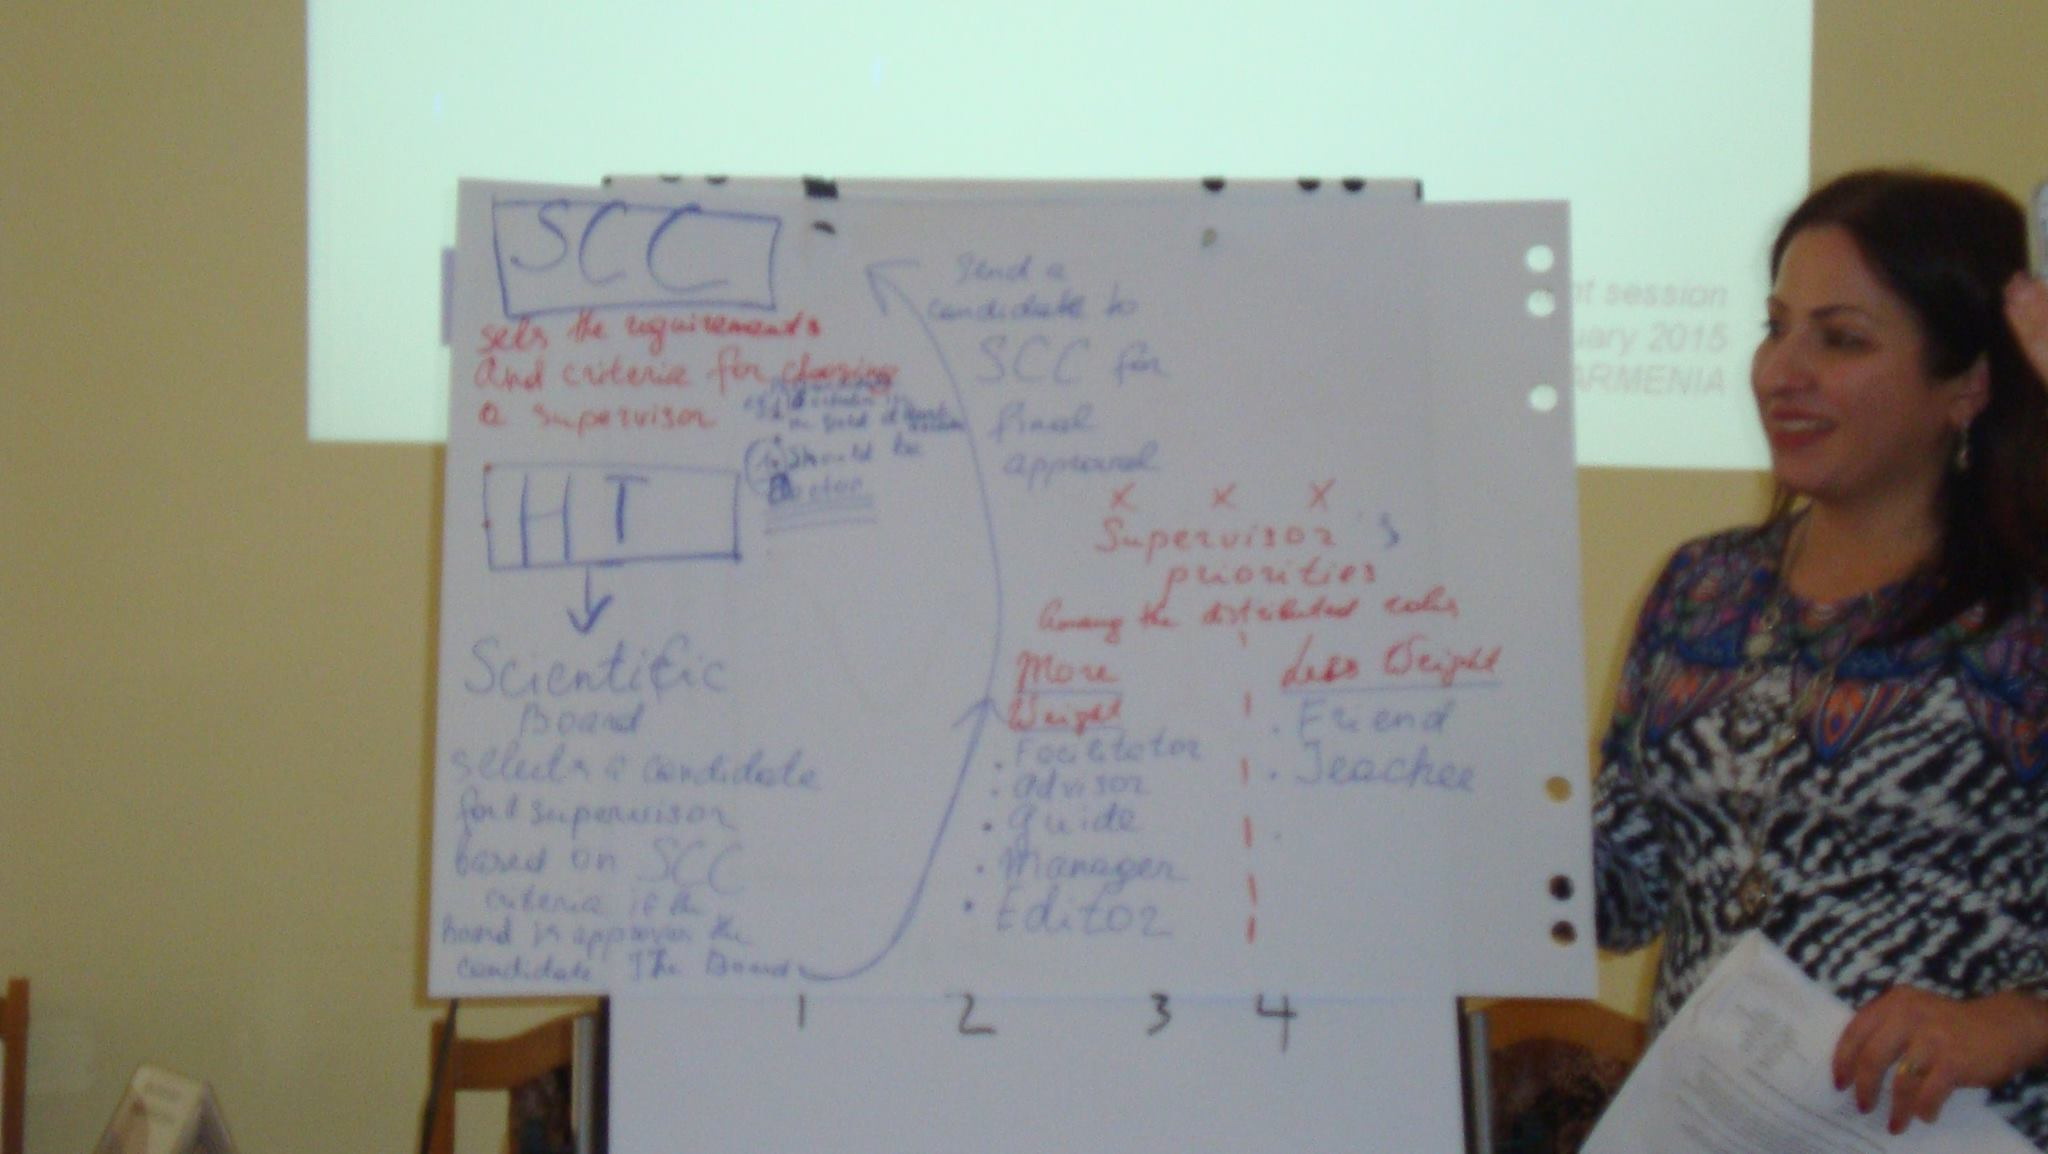 SCC
sets the requirements
And criteria for choosing
a supervisor
should be
Doctor
HT
Scientific
Board
selects a candidate
for supervisor
based on SCC
criteria if the
Board approves the
candidate The Board
Send a
candidate to
SCC for
final
approval
x x x
Supervisor's
priorities
Among the distributed roles
More
Weight
· Facilitator
· advisor
· guide
· Manager
· Editor
Less Weight
· Friend
· Teacher
1 2 3 4
nt session
uary 2015
ARMENIA